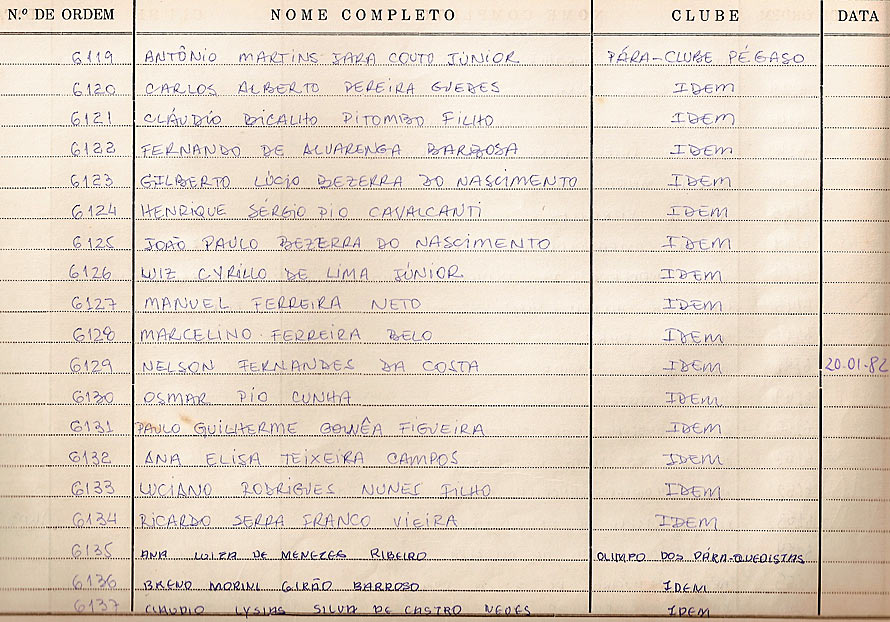 N.º DE ORDEM NOME COMPLETO CLUBE DATA
6119 ANTÔNIO MARTINS JARA COUTO JÚNIOR PÁRA-CLUBE PÉGASO
6120 CARLOS ALBERTO PEREIRA GUEDES IDEM
6121 CLÁUDIO BICALHO PITOMBO FILHO IDEM
6122 FERNANDO DE ALVARENGA BARBOSA IDEM
6123 GILBERTO LÚCIO BEZERRA DO NASCIMENTO IDEM
6124 HENRIQUE SÉRGIO PIO CAVALCANTI IDEM
6125 JOÃO PAULO BEZERRA DO NASCIMENTO IDEM
6126 LUIZ CYRILLO DE LIMA JÚNIOR IDEM
6127 MANUEL FERREIRA NETO IDEM
6128 MARCELINO FERREIRA BELO IDEM
6129 NELSON FERNANDES DA COSTA IDEM 20.01.82
6130 OSMAR PIO CUNHA IDEM
6131 PAULO GUILHERME FIGUEIRA IDEM
6132 ANA ELISA TEIXEIRA CAMPOS IDEM
6133 LUCIANO RODRIGUES NUNES FILHO IDEM
6134 RICARDO SERRA FRANCO VIEIRA IDEM
6135 ANA LUIZA DE MENEZES RIBEIRO OLIMPO DOS PÁRA-QUEDISTAS
6136 BRENO MORINI GIRÃO BARROSO IDEM
6137 CLAUDIO LYSIAS SILVA DE CASTRO IDEM